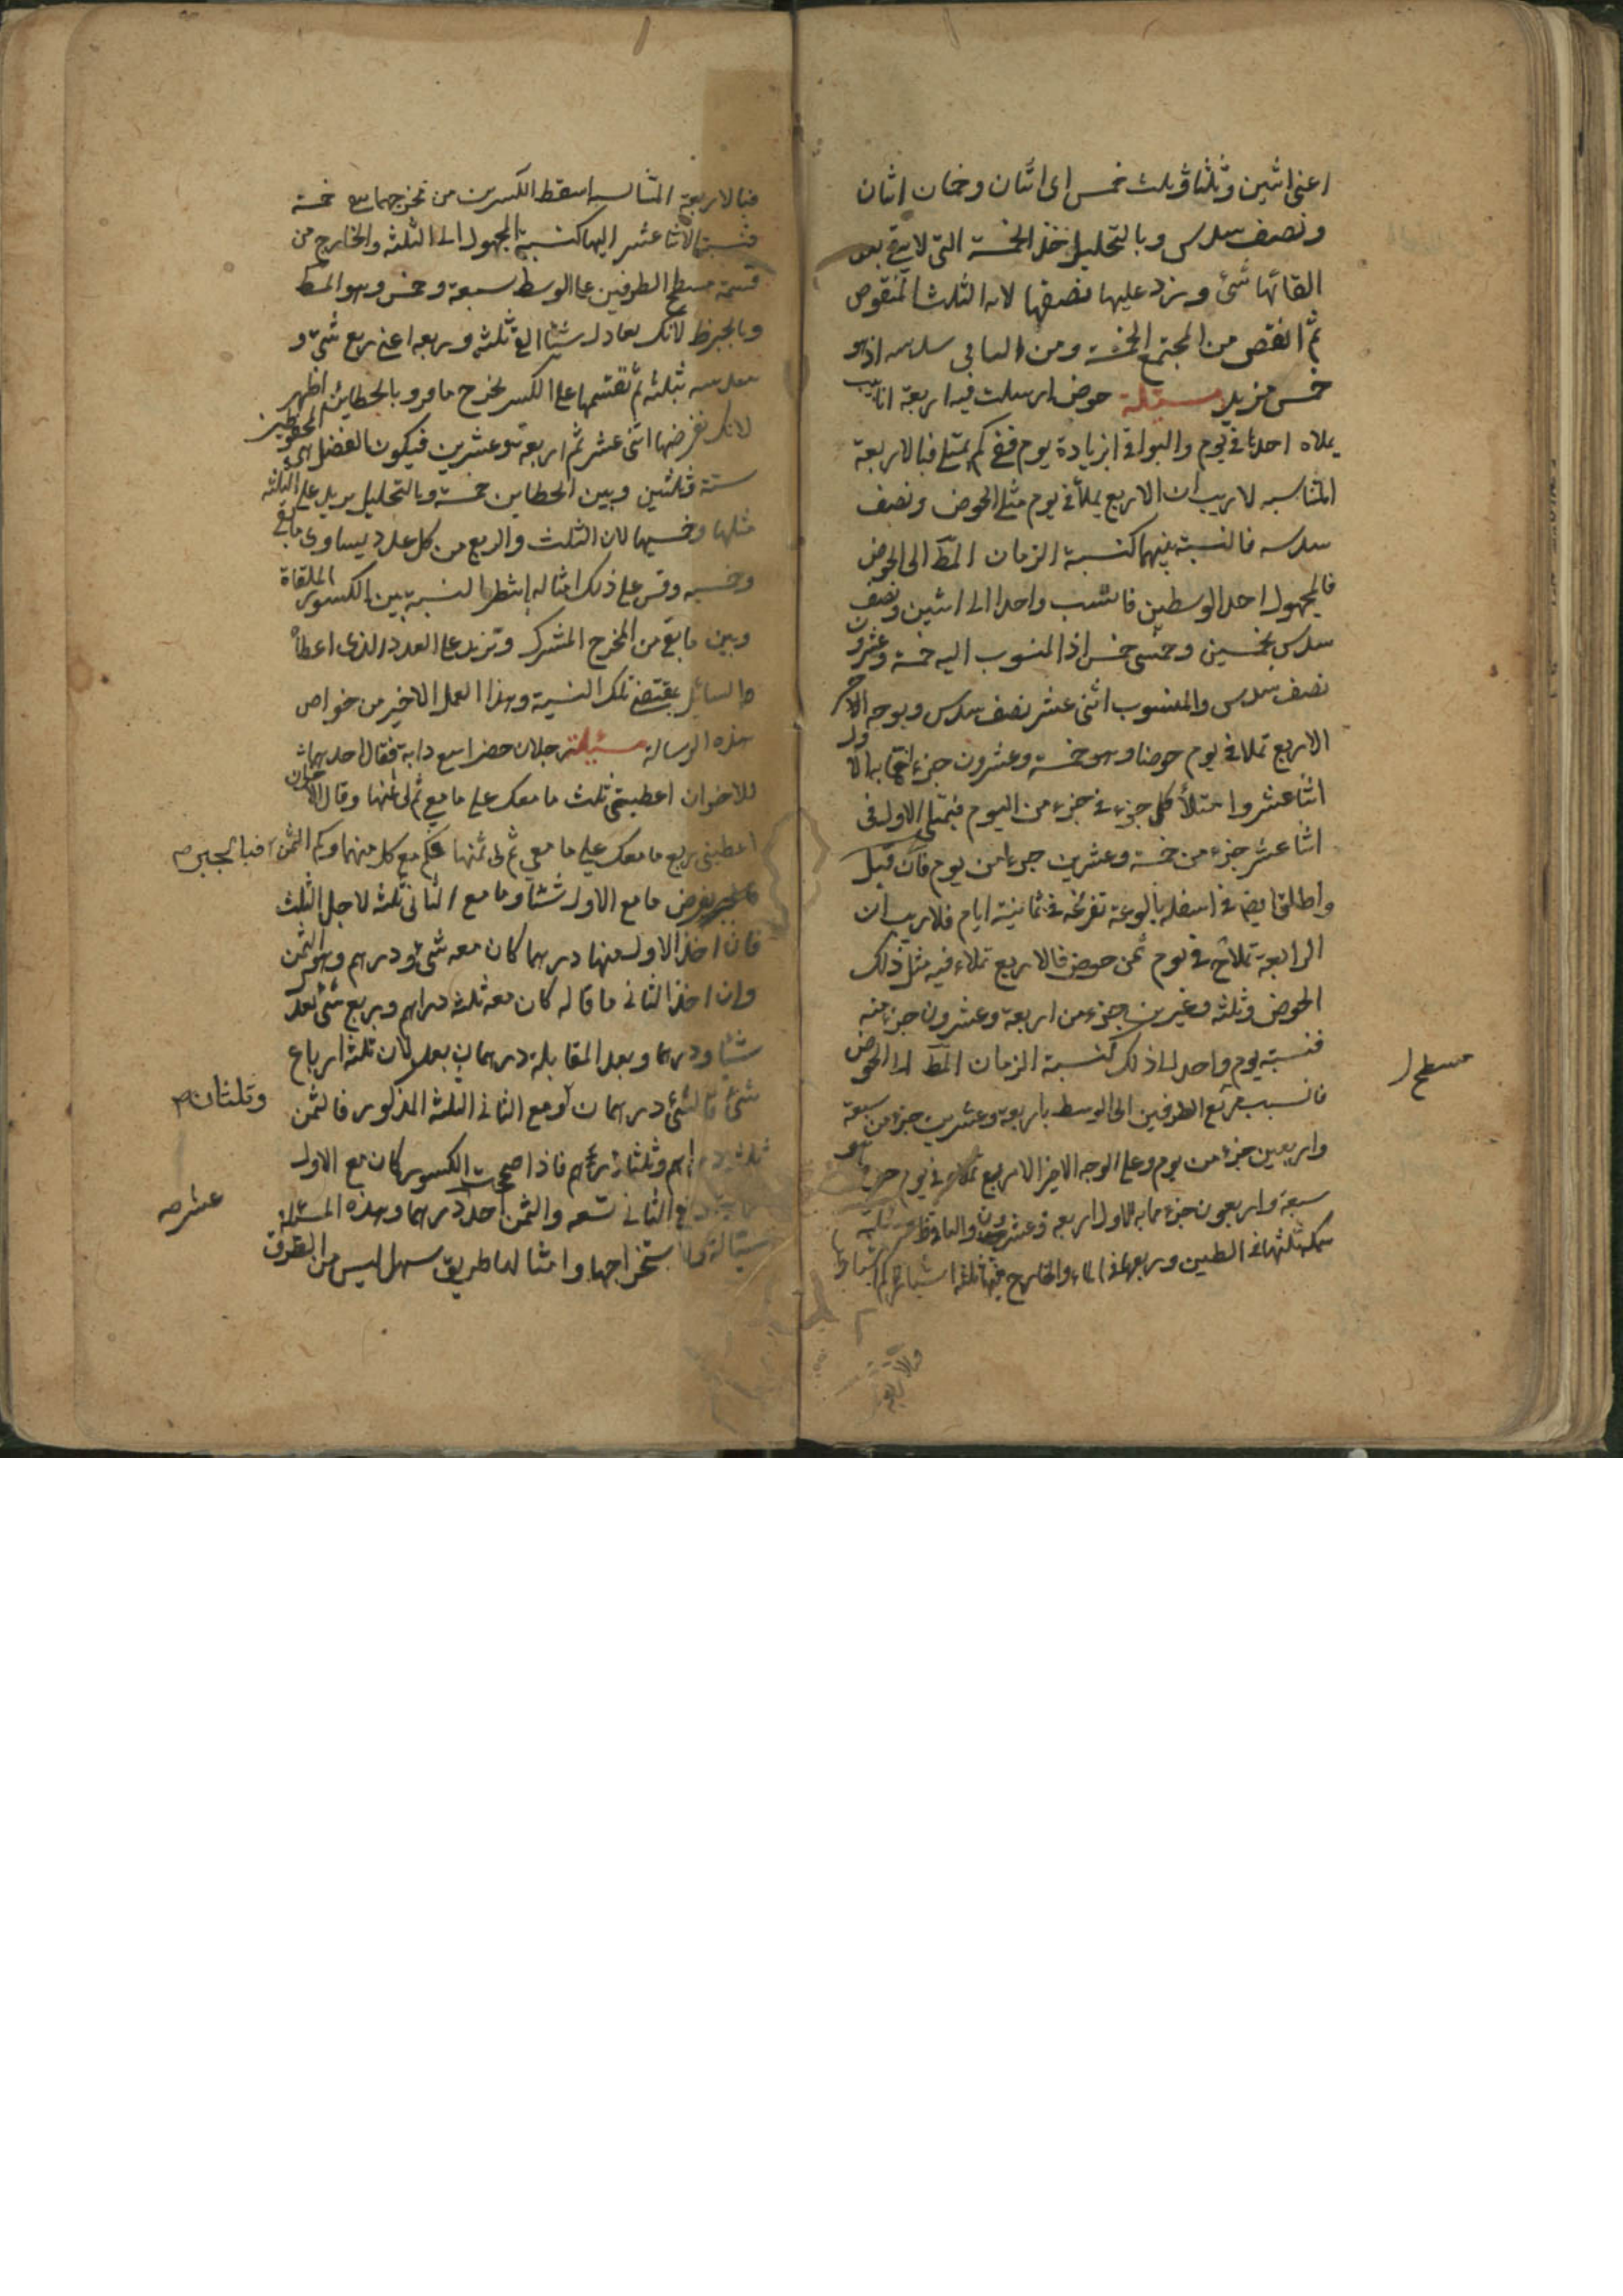 اعنى اثنين وثلثا وثلث خمس اى اثنان وخمسان اثنان
ونصف سدس وبالتحليل خذ الخمسة التى لا يبقى بعد
القائها شئ وزد عليها نصفها لانه الثلث المنقوص
ثم انقص من المجتمع الخمسة ومن الباقى سدسه اذ هو
خمس مزيد مسئلة حوض ارسلت فيه اربعة انابيب
يملاه احدها فى يوم والبواقى بزيادة يوم ففى كم يمتلى فبالاربعة
المتناسبه لاريب ان الاربع يملأ فى يوم مثلى الحوض ونصف
سدسه فالنسبة بينهما كنسبة الزمان المط الى الحوض
فالمجهول احد الوسطين فانسب واحدا الى اثنين ونصف
سدس بخمسين وخمسى خمس اذ المنسوب اليه خمسة وعشرون
نصف سدس والمنسوب اثنى عشر نصف سدس وبوجه الاخر
الاربع تملا فى يوم حوضا وهو خمسة وعشرون جزء مما به الاول
اثنا عشر وامتلأ كل جزء فى جزء من اليوم فيمتلى الاول فى
اثنا عشر جزء من خمسة وعشرين جزءا من يوم فان قيل
واطلق ايضا فى اسفله بالوعة تفرغه فى ثمانية ايام فلاريب ان
الرابعة تملأ فى يوم ثمن حوض فالاربع تملاء فيه مثل ذلك
الحوض وثلثه وعشرين جزء من اربعة وعشرون جزء منه
فنسبة يوم واحد الى ذلك كنسبة الزمان المط الى الحوض
فانسب مربع الطرفين الى الوسط باربعة وعشرين جزء من سبعة
مسطح
واربعين جزء من يوم وعلى الوجه الاخير الاربع تملاء فى يوم حوضا هو
سبعة واربعون جزء مما به الاول اربعة وعشرون والباقى ظ مسئلة
سمكة ثلثها فى الطين وربعها فى الماء والخارج منها ثلثة اشبار كم اشبارها
فبالاربعة المتناسبه اسقط الكسرين من مخرجهما يبقى خمسة
فنسبة الاثنا عشر اليها كنسبة المجهول الى الثلثة والخارج من
قسمة مسطح الطرفين على الوسط سبعة وخمس وهو المط
وبالجبر ظ لانك تعادل شيئا الغ ثلثه وربعه اعنى ربع شئ و
سدسه بثلثه ثم تقسمها على الكسر يخرج ما مر وبالخطائين اظهر
لانك تفرضها اثنى عشر ثم اربعة وعشرين فيكون الفضل بين المحفوظين
ستة وثلثين وبين الخطاين خمسة وبالتحليل يزيد على الثلثة
مثلها وخمسيها لان الثلث والربع من كل عدد يساوى ما بقى
وخمسيه وقس على ذلك امثاله انظر النسبة بين الكسور الملقاة
وبين ما بقى من المخرج المشترك وتزيد على العدد الذى اعطاه
السائل بمقتضى تلك النسبة وهذا العمل الاخير من خواص
هذه الرسالة مسئلة رجلان حضرا بيع دابة فقال احدهما
للاخر ان اعطيتنى ثلث ما معك على ما معى تم لى ثمنها وقال الاخر ان
اعطيتنى ربع ما معك على ما معى تم لى ثمنها فكم مع كل منهما وكم الثمن فبالجبر
يفرض ما مع الاول شيئا وما مع الثانى ثلثه لاجل الثلث
فان اخذ الاول منها درهما كان معه شئ ودرهم وهو الثمن
وان اخذ الثانى ما قاله كان معه ثلثة دراهم وربع شئ يعدل
شيئا ودرهما وبعد المقابلة درهمان يعدلان ثلثة ارباع
شئ فالشئ درهمان ومع الثانى الثلثة المذكور فالثمن
وثلثان
ثلثة دراهم وثلثا درهم فاذا صححت الكسور كان مع الاول
ثمانية ومع الثانى تسعه والثمن احد درهما وهذه المسئلة
عشر
سيالة ولاستخراجها وامثالها طريق سهل ليس من الطرق